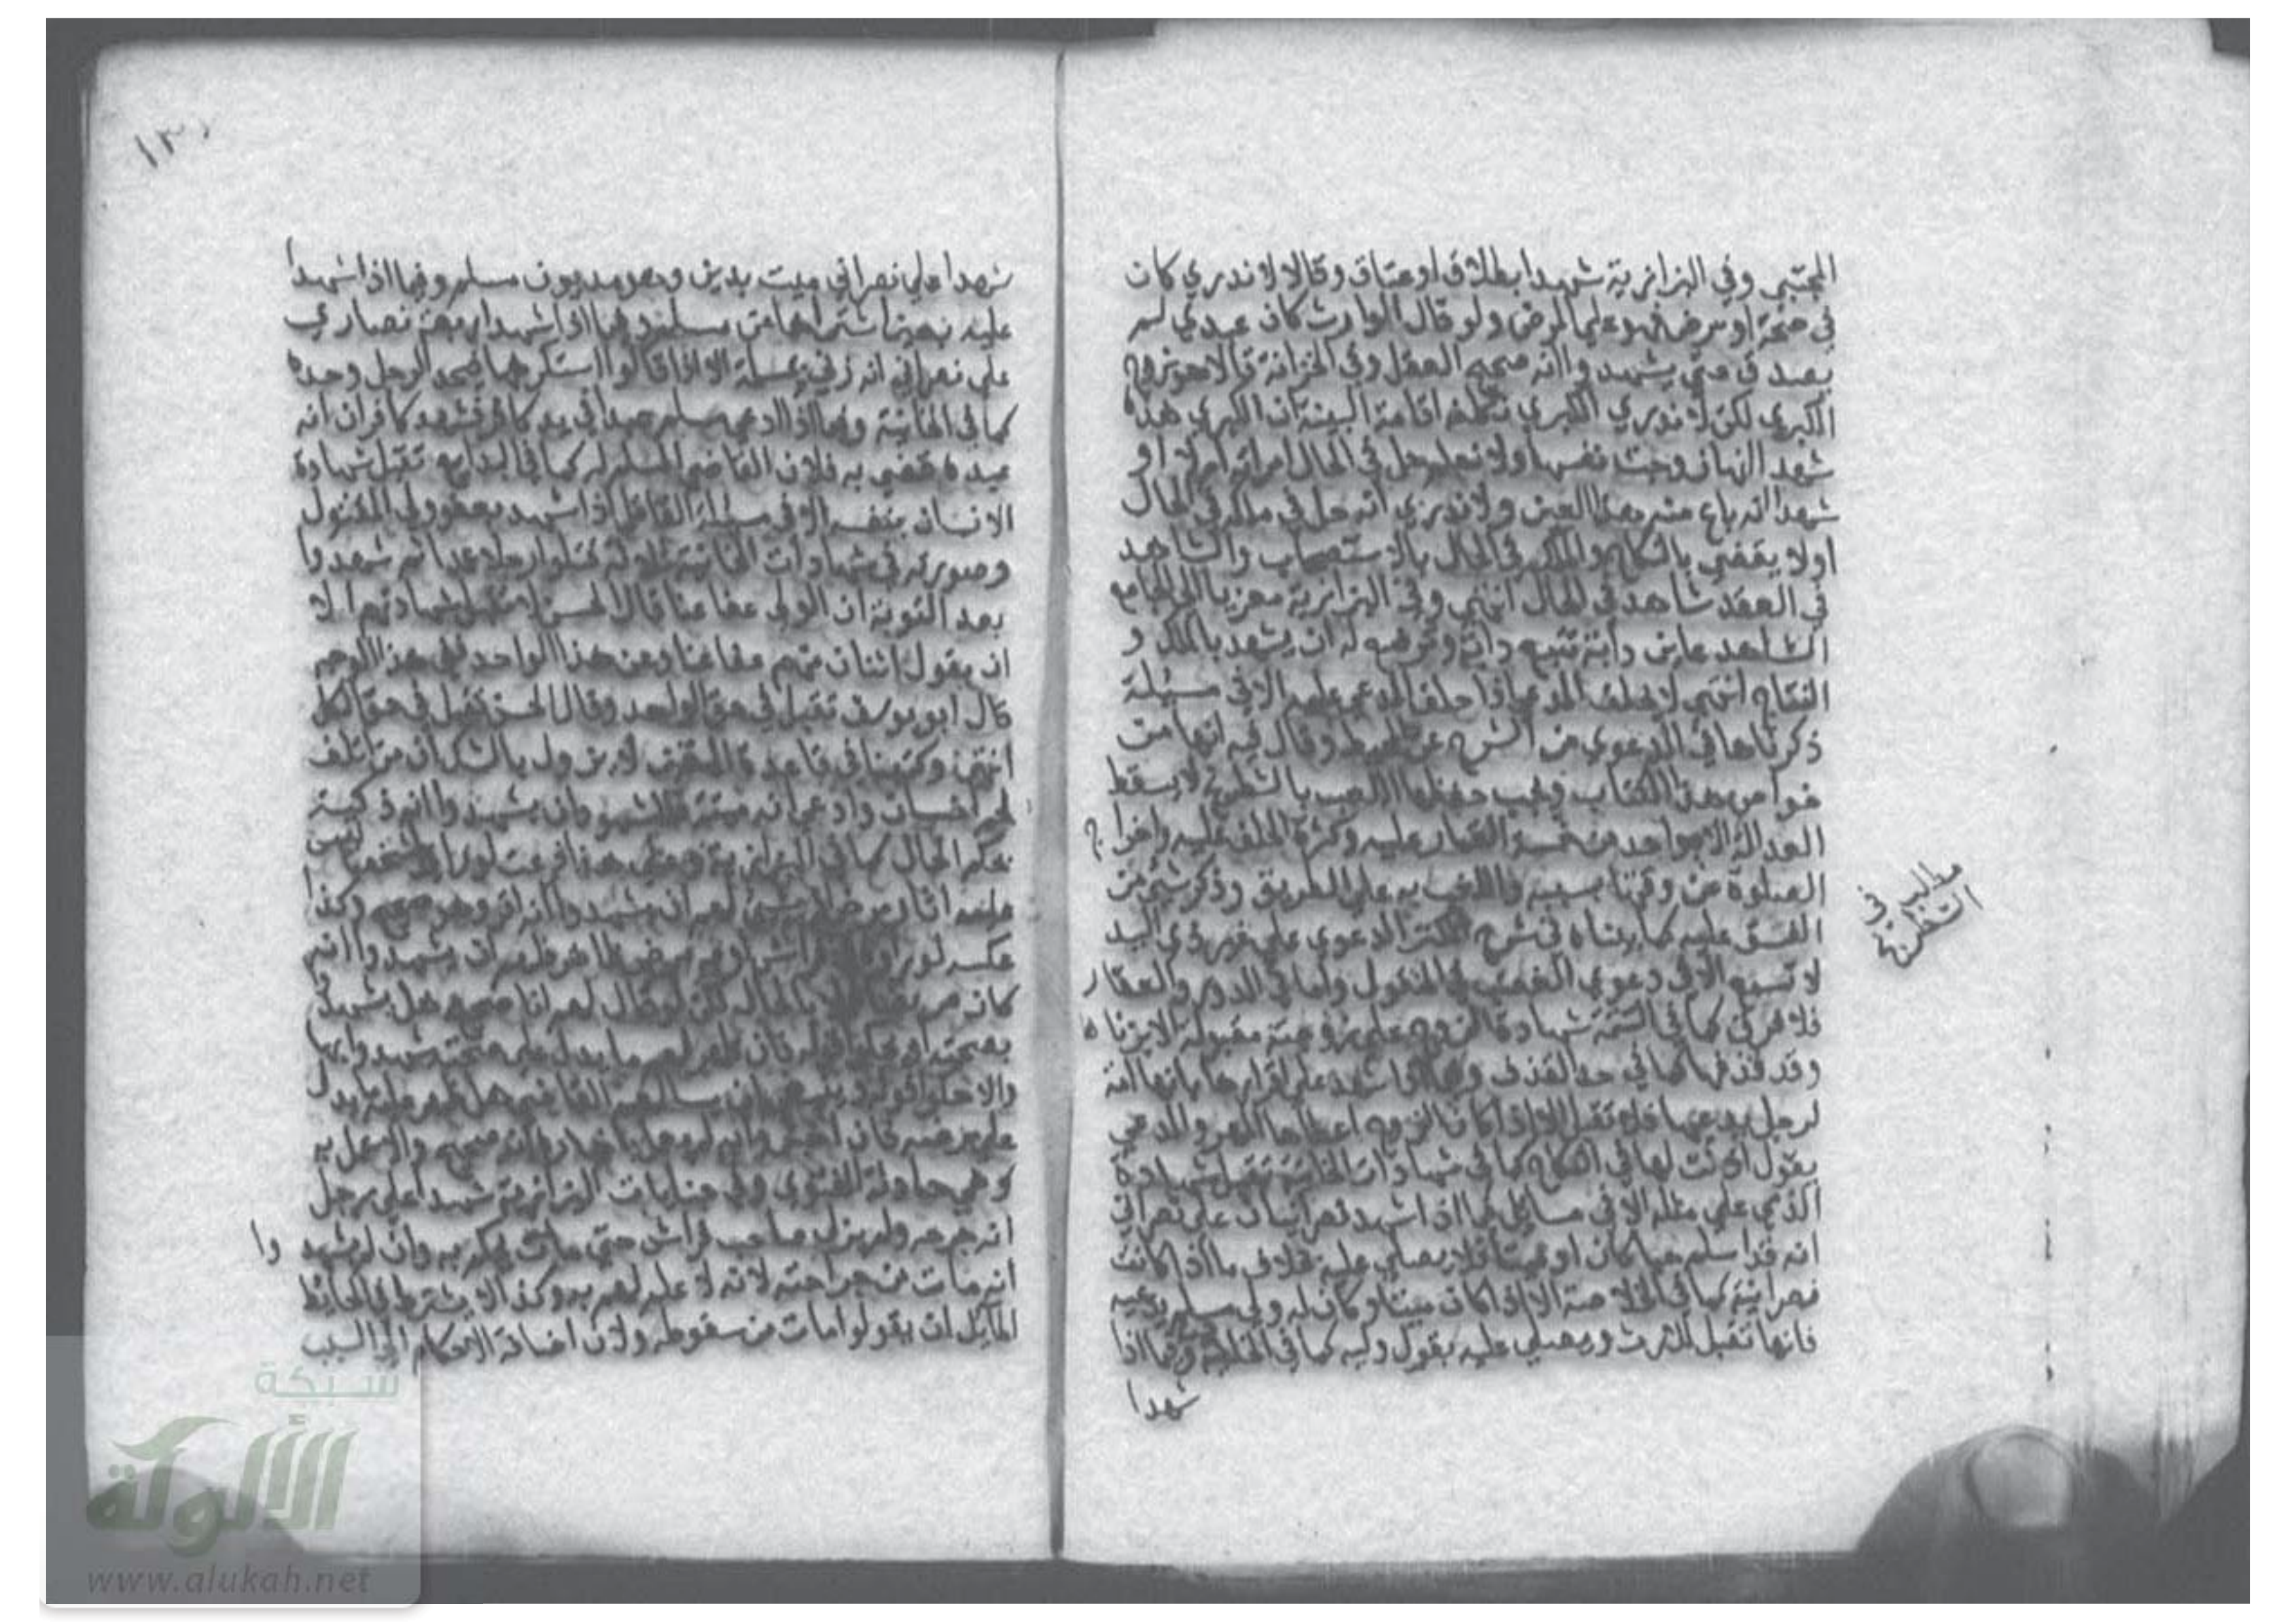 المجتبي وفي البزازية شهدا بطلاق او عتاق وقالا لا ندري كان
في صحة او مرض فهو علي المرض ولو قال الوارث كان يهدي لم
يصدق حتي يشهدوا انه صحيح العقل وفي الخزانة قالا هو زوج
الكبري لكن لا ندري الكبري نكلفه اقامة البينة ان الكبري هذه
شهدا انها زوجت نفسها ولا نعلم هل في الحال امراته ام لا او
شهدا انه باع منه هذا العين ولا ندري انه هل في ملكه في الحال
اولا يقضي بالنكاح والملك في الحال بالاستصحاب والشاهد
في العقد شاهد في الحال انتهي وفي البزازية معزيا الي الجامع
الشاهد عاين دابة تتبع دابة وترضع له ان يشهد بالملك و
النتاج انتهي لا يحلف المدعي اذا حلف المدعي عليه الا في مسئلة
ذكرناها في الدعوي من الشرح عن المحيط وقال فيه انها من
خواص هذا الكتاب ويجب حفظها اللعب بالشطرنج لا يسقط
العدالة الا بواحد من خمسة القمار عليه وكثرة الحلف عليه واخراج
الصلوة عن وقتها بسببه واللعب به علي الطريق وذكر شيء من
الفسق عليه كما بيناه في شرح الكنز الدعوي علي غير ذي اليد
لا تسمع الا في دعوي الغصب في المنقول واما في الدور والعقار
فلا فرق كما في اليتيمة شهادة الزوج علي زوجته مقبولة الا بزناها
وقد قذفها كما في حد القذف وفيما اذا شهد علي اقرارها بانها امة
لرجل يدعيها فلا تقبل الا اذا كان الزوج اعطاها المهر والمدعي
يقول اذنت لها في النكاح كما في شهادات الخانية تقبل شهادة
الذمي علي مثله الا في مسائل فيما اذا شهد نصرانيان علي نصراني
انه قد اسلم حيا كان او ميتا فلا يصلي عليه بخلاف ما اذا كانت
نصرانية كما في الخلاصة الا اذا كان ميتا وكان له ولي مسلم يدعيه
فانها تقبل للارث ويصلي عليه بقول وليه كما في الخانية وفيما اذا
شهدا
مطالب في
١٣٠
شهدا علي نصراني ميت بدين وهو مديون مسلم وفيما اذا شهدا
عليه بعين اشتراها من مسلم وفيما اذا شهد اربعة نصاري
علي نصراني انه زني بمسلمة الا اذا قالوا استكرهها فيحد الرجل وحده
كما في الخانية وفيما اذا ادعي مسلم عبدا في يد كافر فشهد كافران انه
عبده قضي به فلان القاضي المسلم له كما في البدايع تقبل شهادة
الانسان لنفسه الا في مسئلة القاتل اذا شهد بعفو ولي المقتول
وصورته في شهادات الخانية ثلاثة قتلوا رجلا عمدا ثم شهدوا
بعد التوبة ان الولي عفا عنا قال الحسن لا تقبل شهادتهم الا
ان يقول اثنان منهم عفا عنا وعن هذا الواحد ففي هذا الوجه
قال ابو يوسف تقبل في حق الواحد وقال الحسن تقبل في حق الكل
انتهي وكتبنا في قاعدة اليقين لا يزول بالشك ان من اتلف
لحم انسان وادعي انه ميتة فللشهود ان يشهدوا انه ذكية
بحكم الحال كما في البزازية وعلي هذا فرعت لو راوا شخصا ليس
عليه اثار مرض لهم ان يشهدوا انه اقر وهو صحيح وكذا
عكسه لو راوه في فراش او به مرض ظاهر لهم ان يشهدوا انه
كان مريضا عملا بالحال لكن لو قال لهم انا صحيح هل يشهدون
بصحته او
والا
وهي حادثة الفتوي وفي جنايات البزازية شهدا علي رجل
انه جرحه ولم يزل صاحب فراش حتي مات يحكم به وان لم يشهدوا
انه مات من جراحته لانه لا علم لهم به وكذا لا يشترط في الحائط
المائل ان يقولوا مات من سقوطه ولان اضافة الاحكام الي السبب
شبكة
الألوكة
www.alukah.net